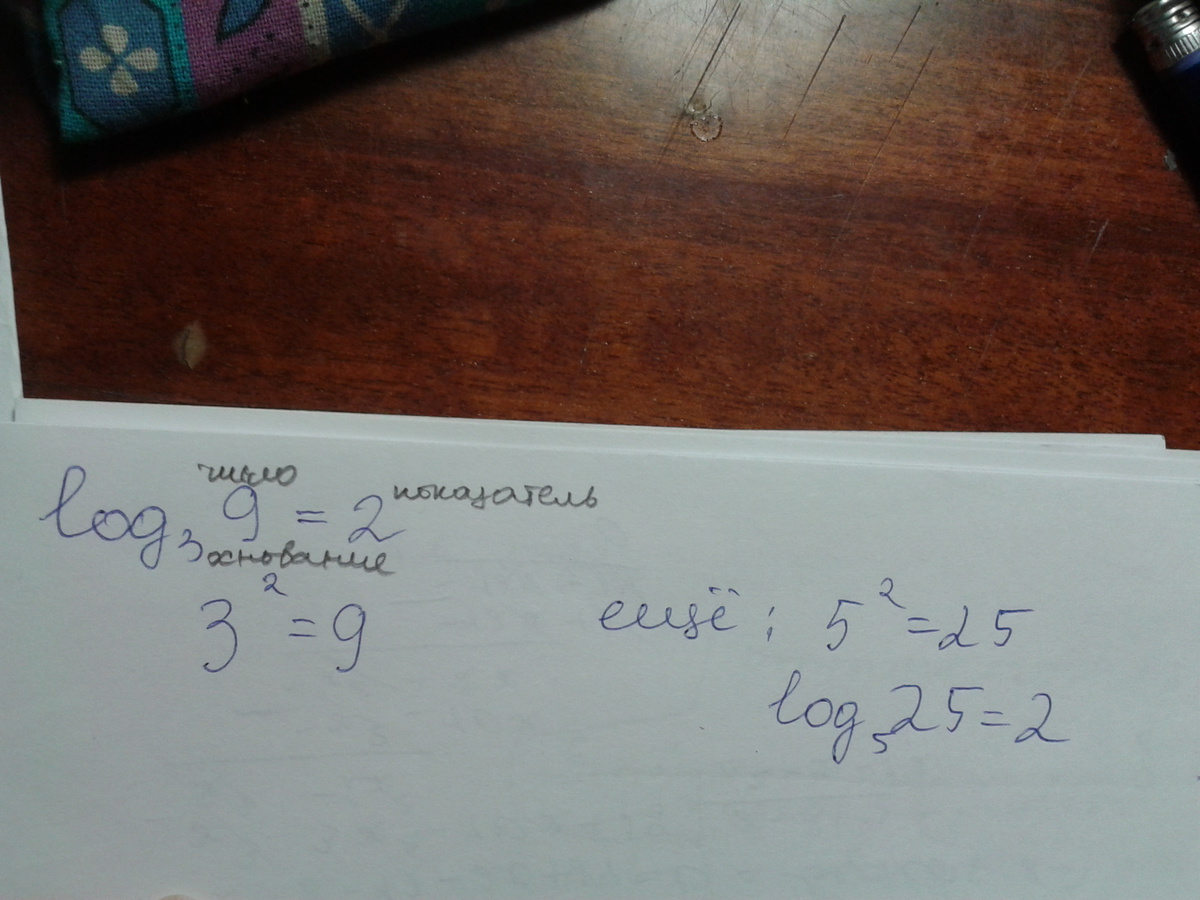 число
log₃ 9 = 2 показатель
основание
3² = 9
ещё : 5² = 25
log₅ 25 = 2